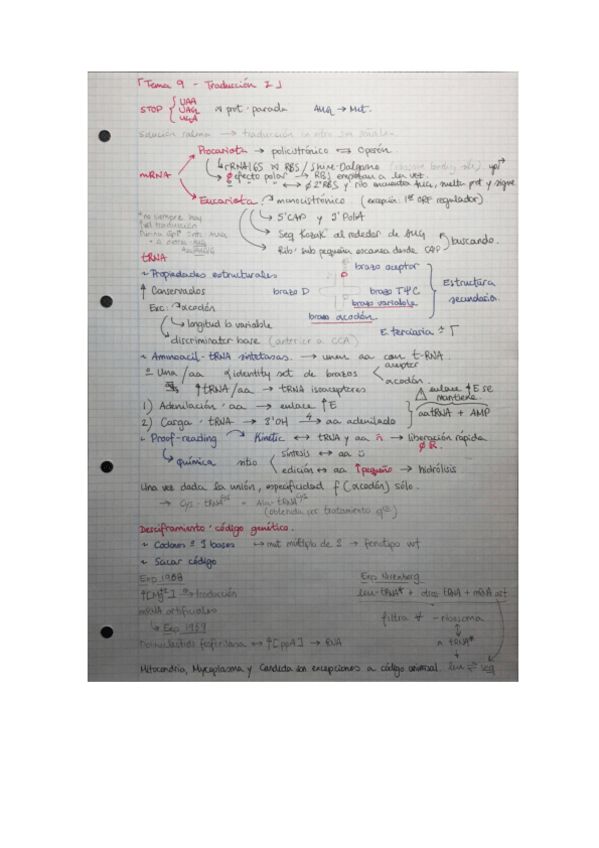 「Tema 9 - Traducción I」
STOP { UAA UAG UGA prot. parada AUG → Met.
Solución salina → traducción in vitro sin señales.
mRNA
Procariota → policistrónico ⇔ Operón.
rRNA 16S RBS / Shine-Dalgarno
efecto polar → RBS empotran a la vez.
Eucariota: monocistrónico (excepción: 1er ORF regulador)
5' CAP y 3' PoliA
Seq Kozak al rededor de AUG
Rib' sub pequeña escanea desde CAP buscando.
*no siempre hay
tRNA
~ Propiedades estructurales
↑ Conservados
Exc: acodón
longitud b variable
discriminator base (anterior a CCA)
brazo aceptor
brazo D brazo TΨC
brazo variable
brazo acodón
Estructura secundaria
E. terciaria ≃ Γ
~ Aminoacil-tRNA sintetasas. → unen aa con t-RNA.
Una/aa identity set de brazos < aceptor acodón.
↑ tRNA/aa → tRNA isoaceptores
1) Adenilación · aa → enlace ↑E
2) Carga · tRNA → 3'OH → aa adenilado
aatRNA + AMP
△ enlace ↑E se mantiene.
~ Proof-reading Kinetic ↔ tRNA y aa → liberación rápida
química sitio síntesis ↔ aa
edición ↔ aa ↑ pequeño → hidrólisis
Una vez dada la unión, especificidad f (acodón) sólo.
→ Cys-tRNA Cys - Ala-tRNA Cys
(obtenida por tratamiento
Desciframiento · código genético.
~ Codones = 3 bases ↔ mut múltiplo de 3 → fenotipo wt
~ Sacar código
Exp 1988
↑[Mg²⁺] traducción
mRNA artificiales
↳ Exp 1959
Polinucleótido fosforilasa ↔ ↑[ppN] → RNA
Exp Nirenberg
leu-tRNA* + otros tRNA + mRNA art
filtra - ribosoma
tRNA*
leu ⇌ seq
Mitocondria, Mycoplasma y Candida son excepciones a código universal.